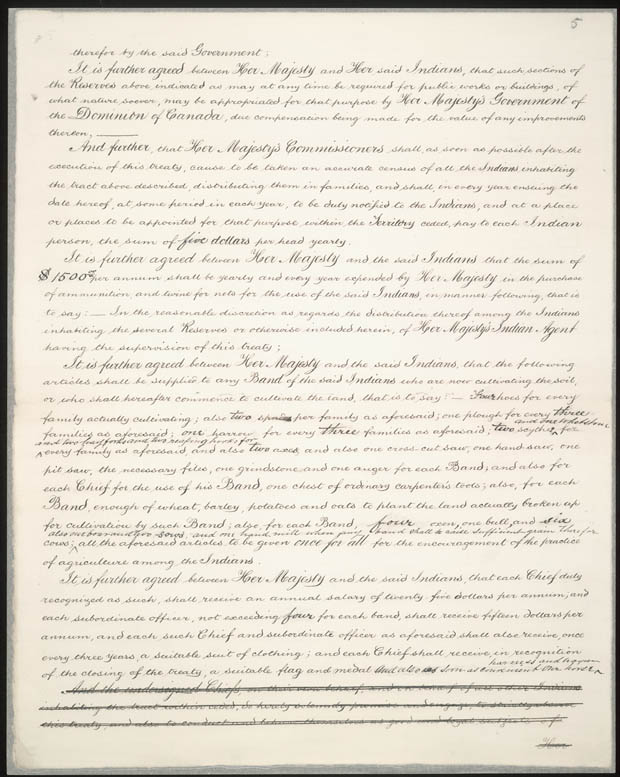 5
therefor by the said Government;
It is further agreed between Her Majesty and Her said Indians, that such sections of
the Reserves above indicated as may at any time be required for public works or buildings, of
what nature soever, may be appropriated for that purpose by Her Majesty's Government of
the Dominion of Canada, due compensation being made for the value of any improvements
thereon,
And further, that Her Majesty's Commissioners, shall, as soon as possible after the
execution of this treaty, cause to be taken an accurate census of all the Indians inhabiting
the tract above described, distributing them in families, and shall in every year ensuing the
date hereof, at some period in each year, to be duly notified to the Indians, and at a place
or places to be appointed for that purpose within the Territory ceded, pay to each Indian
person, the sum of five dollars per head yearly.
It is further agreed between Her Majesty and the said Indians that the sum of
$1500 per annum shall be yearly and every year expended by Her Majesty in the purchase
of ammunition and twine for nets for the use of the said Indians, in manner following, that is
to say:— In the reasonable discretion as regards the distribution thereof among the Indians
inhabiting the several Reserves or otherwise included herein, of Her Majesty's Indian Agent
having the supervision of this treaty;
It is further agreed between Her Majesty and the said Indians, that the following
articles shall be supplied to any Band of the said Indians who are now cultivating the soil,
or who shall hereafter commence to cultivate the land, that is to say:— Four hoes for every
family actually cultivating; also two per family as aforesaid; one plough for every three
and one whetstone
families as aforesaid; one harrow for every three families as aforesaid; two scythes, for
and two hay forks and two reaping hooks for
every family as aforesaid and also two axes, and also one cross-cut saw, one hand saw, one
pit saw, the necessary files, one grindstone and one auger for each Band; and also for
each Chief for the use of his Band, one chest of ordinary carpenter's tools; also, for each
Band, enough of wheat, barley, potatoes and oats to plant the land actually broken up
for cultivation by such Band; also, for each Band, four oxen, one bull, and six
also one boar and two sows, and one hand mill when any band shall raise sufficient grain therefor
cows; all the aforesaid articles to be given once for all for the encouragement of the practice
of agriculture among the Indians.
It is further agreed between Her Majesty and the said Indians, that each Chief duly
recognized as such, shall receive an annual salary of twenty five dollars per annum; and
each subordinate officer, not exceeding four for each band, shall receive fifteen dollars per
annum, and each such Chief and subordinate officer as aforesaid shall also receive, once
every three years, a suitable suit of clothing; and each Chief shall receive, in recognition
harness and waggon
of the closing of the treaty, a suitable flag and medal and also as soon as convenient one horse
And the undersigned Chiefs, on their own behalf, and on behalf of all other Indians
inhabiting the tract within ceded, do hereby solemnly promise and engage, to strictly observe
this treaty, and also to conduct and behave themselves as good and loyal subjects of
Her